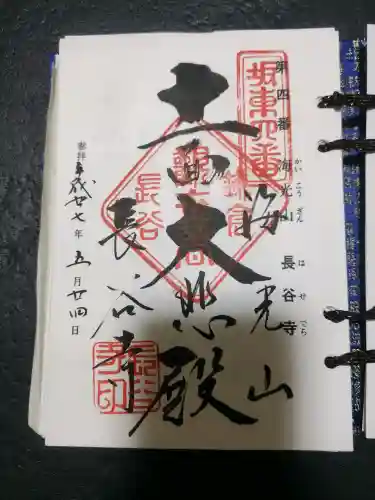 第四番 海光山 長谷寺
かいこうざん
はせでら
坂東四番
海光山
十一面大悲殿
長谷
長谷寺
奉拝
平成廿七年五月廿四日